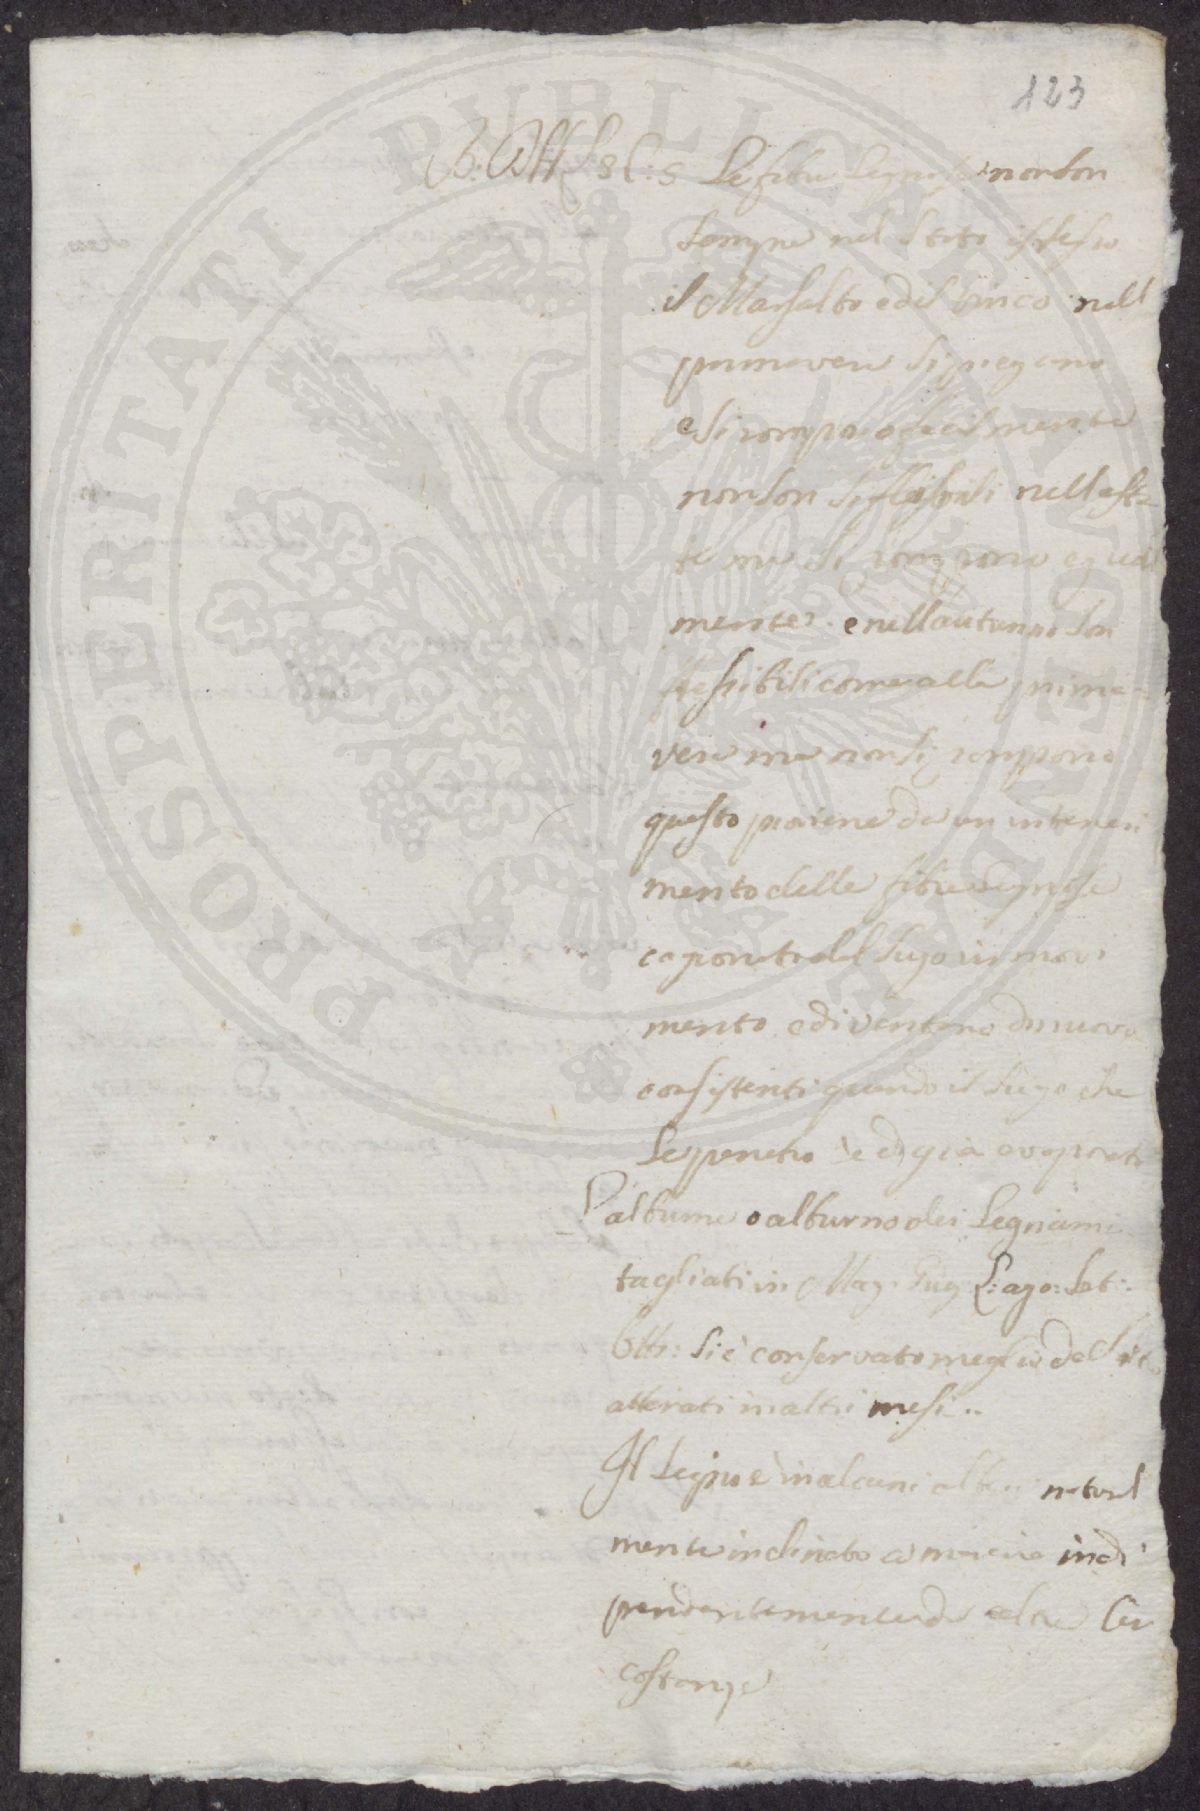 123
Le fibre legnose non son
sempre nel stato istesso
il Marsalto ed il Vinco nell
primavera si piegano
e si rompono facilmente
non son si flessibili nell esta
te ma si rompono egual
mente. e nell autunno son
flessibili come alla prima
vera ma non si rompono
questo proviene da un inteneri
mento delle fibre legnose
del sugo in movi
mento e diventano di nuovo
consistenti quando il sugo che
le penetro è di già evaporato
L'albume o alburno dei Legnami
tagliati in Mag. Giug. L: ago: Set:
Otto: si è conservato meglio del
atterati in altri mesi..
Il Legno è in alcuni alberi natural
mente inclinato a marcire indi
pendentemente da altre Cir
costanze
PROSPERITATI PUBLICAE AUGENDAE